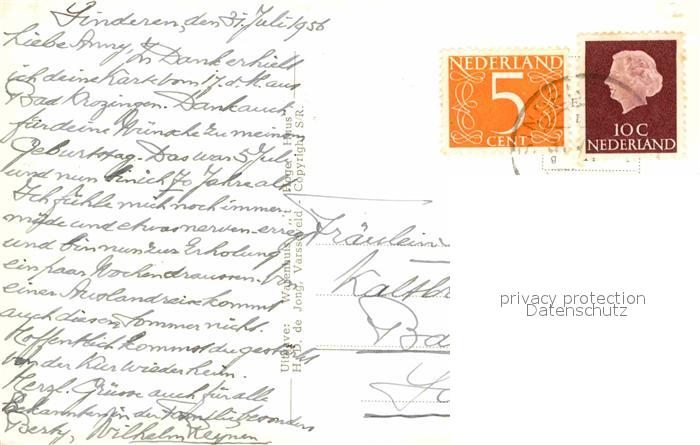 Sinderen, den 31. Juli 1956
Liebe Anny, In Dank erhielt
ich deine Karte vom 17. d. M. aus
Bad Krozingen. Dank auch
für deine Wünsche zu meinem
Geburtstag. Das war 5 Juli
und nun bin ich 70 Jahre alt.
Ich fühle mich noch immer
müde und etwas nerven
und bin nun zur Erholung
ein paar Wochen draussen.
einer Auslandreise kommt
auch diesen Sommer nicht.
Hoffentlich kommst du gestärkt
von der Kur wieder heim.
Herzl. Grüsse auch für alle
Bekannten in der Familie besonders
Berty, Wilhelm
Uitgave: Warenhuis "'t Hoge Huis"
H. D. de Jong, Varsseveld - Copyright S/R.
Fräulein
Ba
NEDERLAND
5
CENT
10 C
NEDERLAND
privacy protection
Datenschutz